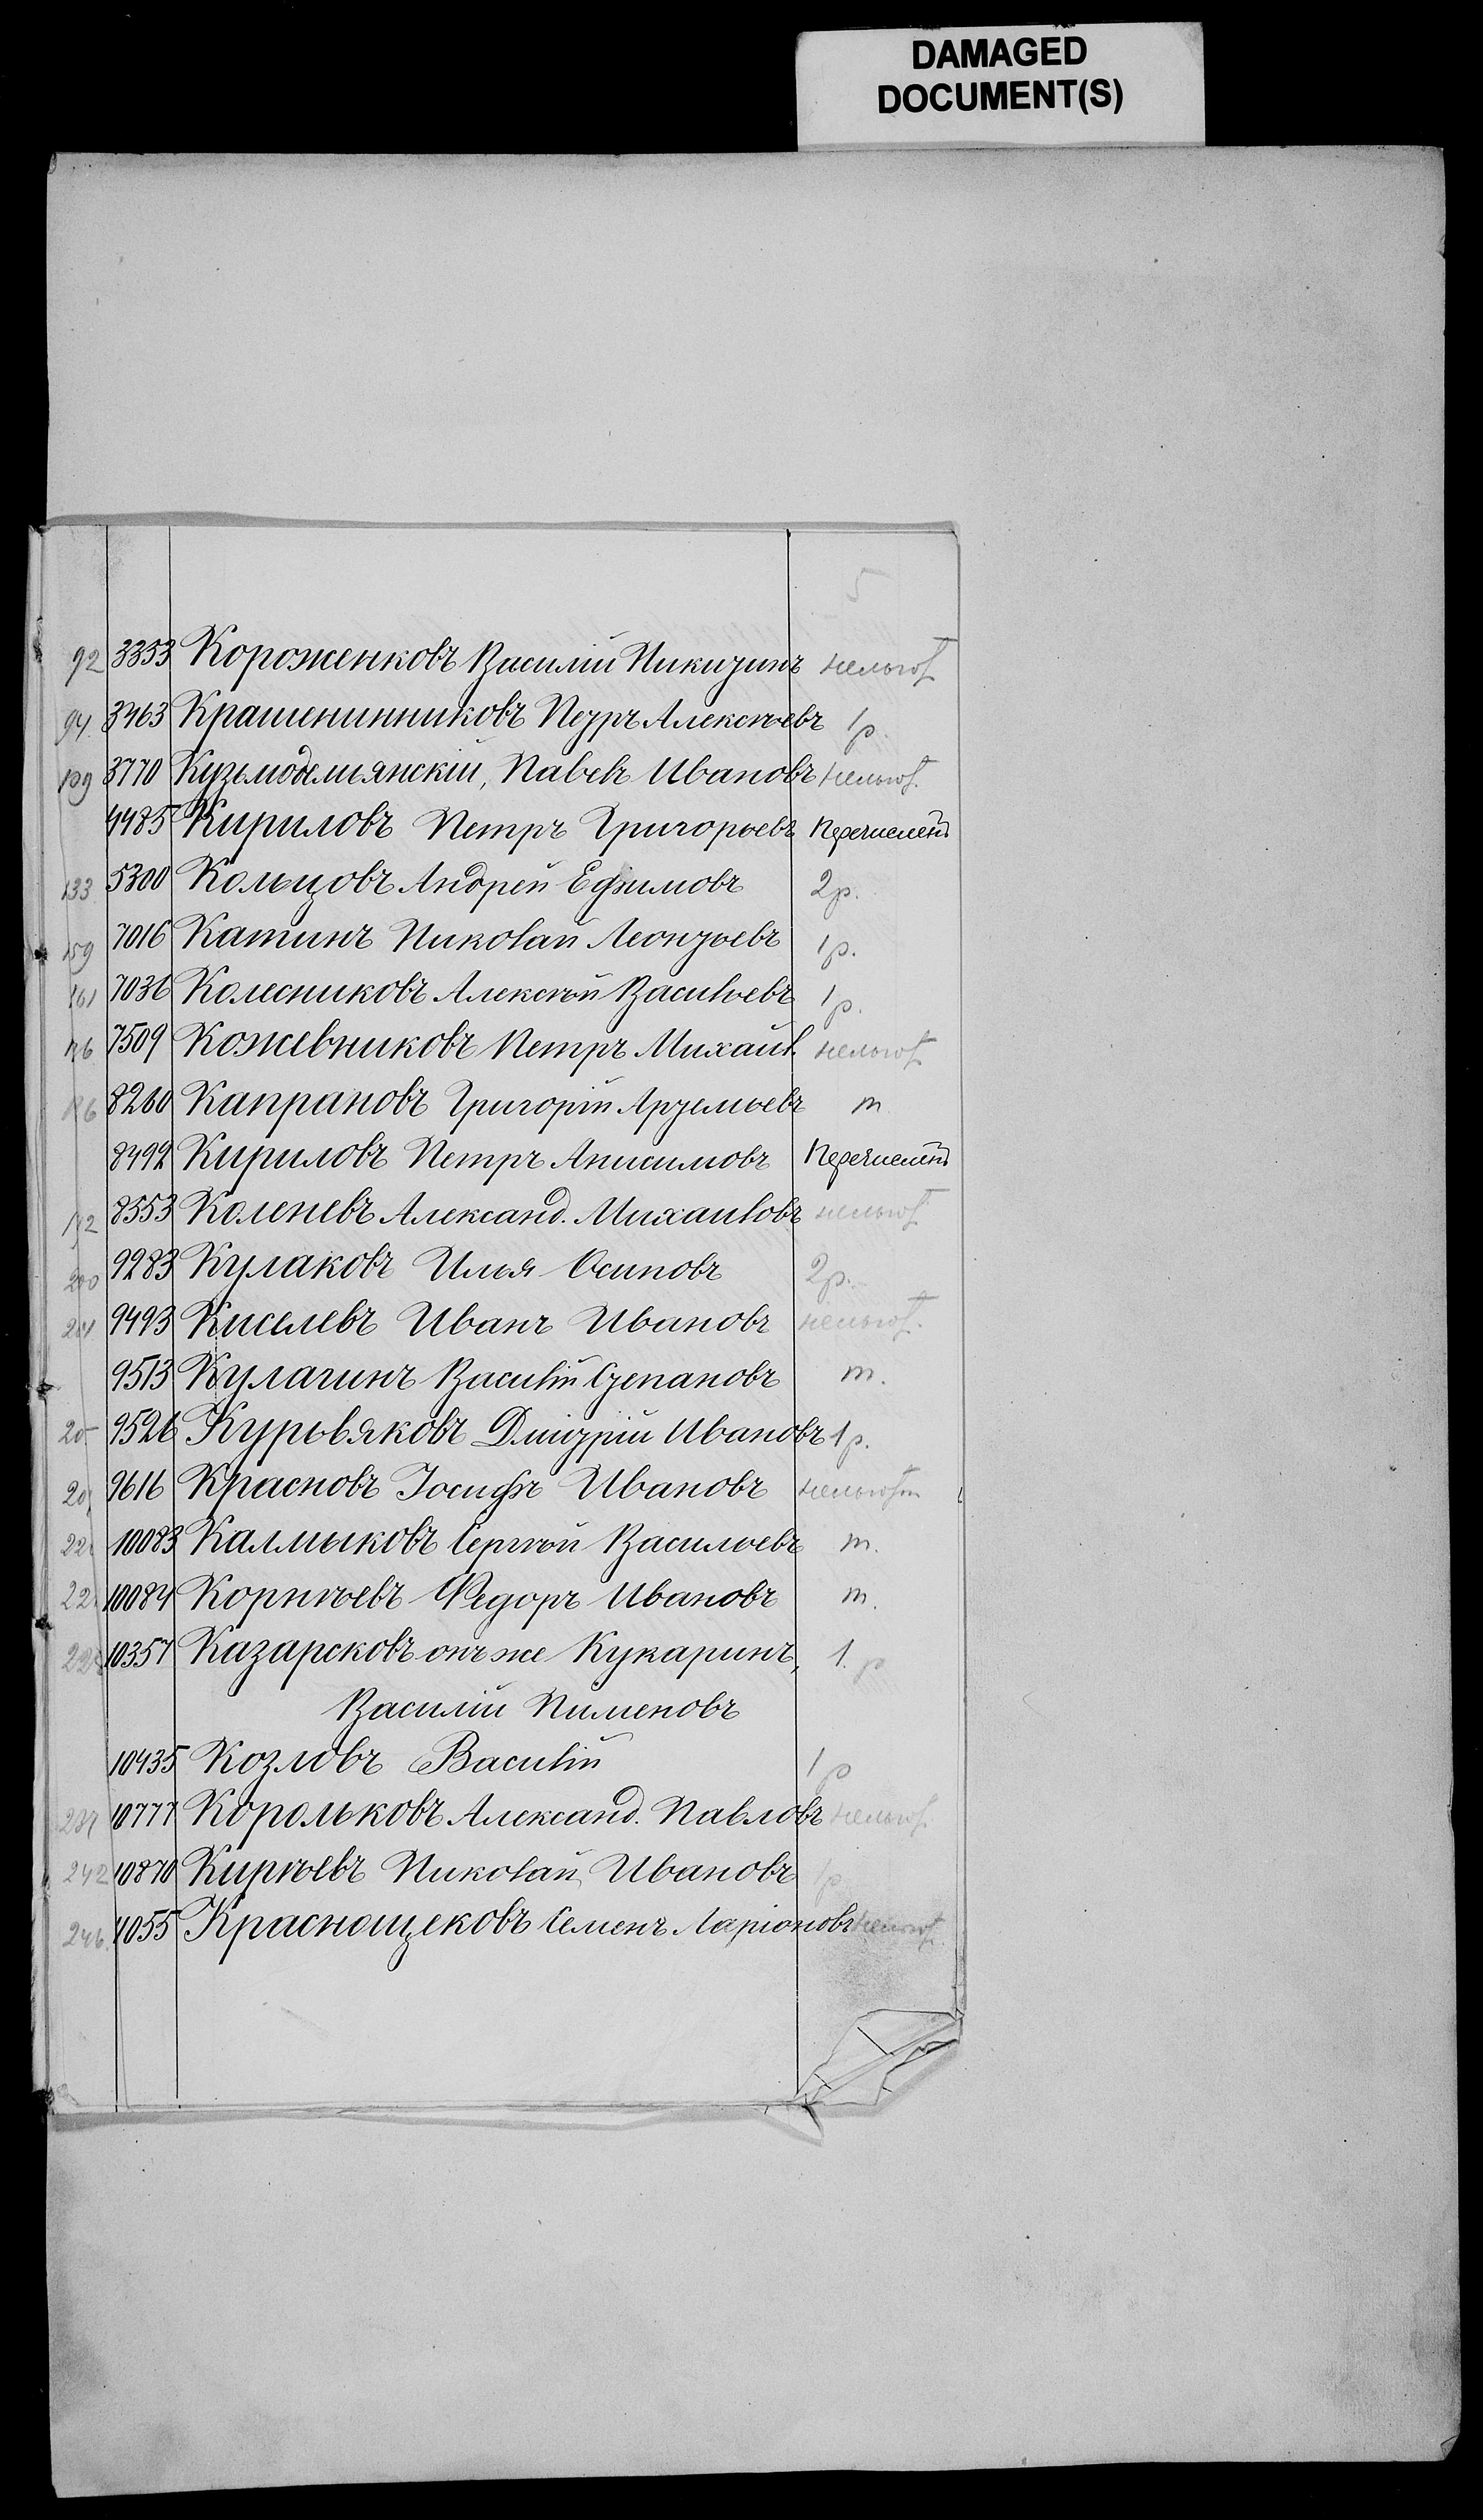 DAMAGED
DOCUMENT(S)
5
92 3353 Короженковъ Василій Никитинъ нельгот.
94. 3463 Крашенинниковъ Петръ Алексѣевъ 1р.
109 3770 Кузьмодемьянскій, Павелъ Ивановъ нельгот.
4485 Кириловъ Петръ Григорьевъ Перечисленъ
133 5300 Кольцовъ Андрей Ефимовъ 2р.
159 7016 Катинъ Николай Леонтьевъ 1р.
161 7036 Колесниковъ Алексѣй Васильевъ 1р.
7509 Кожевниковъ Петръ Михаил. нельгот.
8260 Капрановъ Григорій Артемьевъ т
8492 Кириловъ Петръ Анисимовъ Перечисленъ
8553 Коленевъ Александ. Михаиловъ нельгот.
200 9283 Кулаковъ Илья Осиповъ 2р.
204 9493 Киселевъ Иванъ Ивановъ нельгот.
9513 Кулагинъ Василій Степановъ т.
20 9526 Курьвяковъ Дмитрій Ивановъ 1р.
20 9616 Красновъ Іосифъ Ивановъ нельгот.
22 10083 Калмыковъ Сергѣй Васильевъ т.
22 10084 Корнѣевъ Федоръ Ивановъ т.
10357 Казарсковъ онъ же Кукаринъ, 1.р
Василій Пименовъ
10435 Козловъ Василій 1р
10777 Корольковъ Александ. Павловъ нельгот.
242 10870 Кирѣевъ Николай Ивановъ 1р.
246. 4055 Краснощековъ Семенъ Ларіоновъ нельгот.